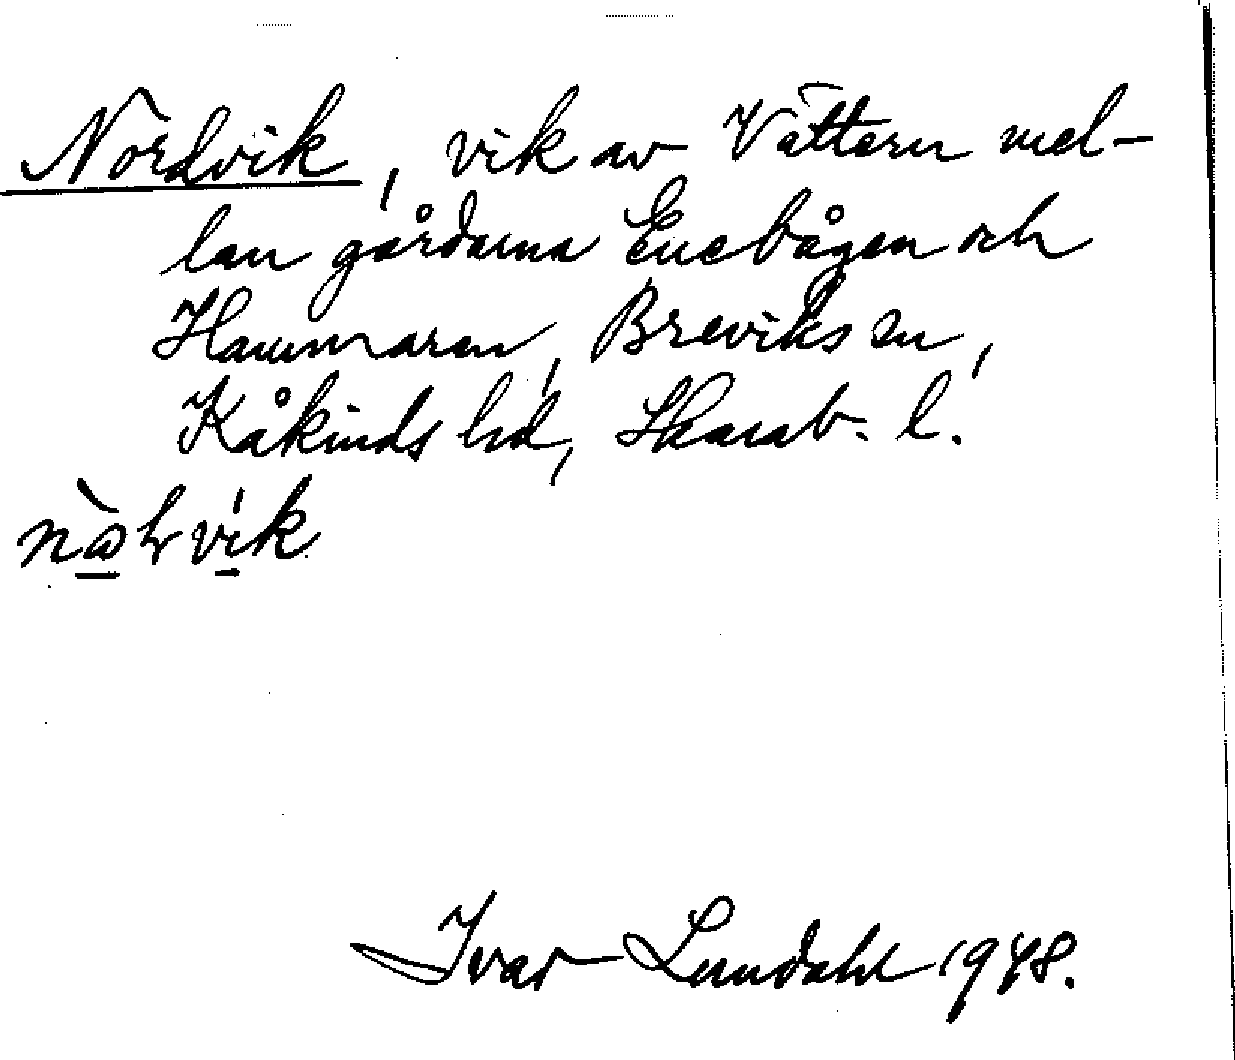 Nordvik, vik av Vättern mel-
lan gårdarna Enebågen och
Hammaren, Breviks sn,
Kåkinds hd, Skarab. l.
Ivar Lundahl 1948.